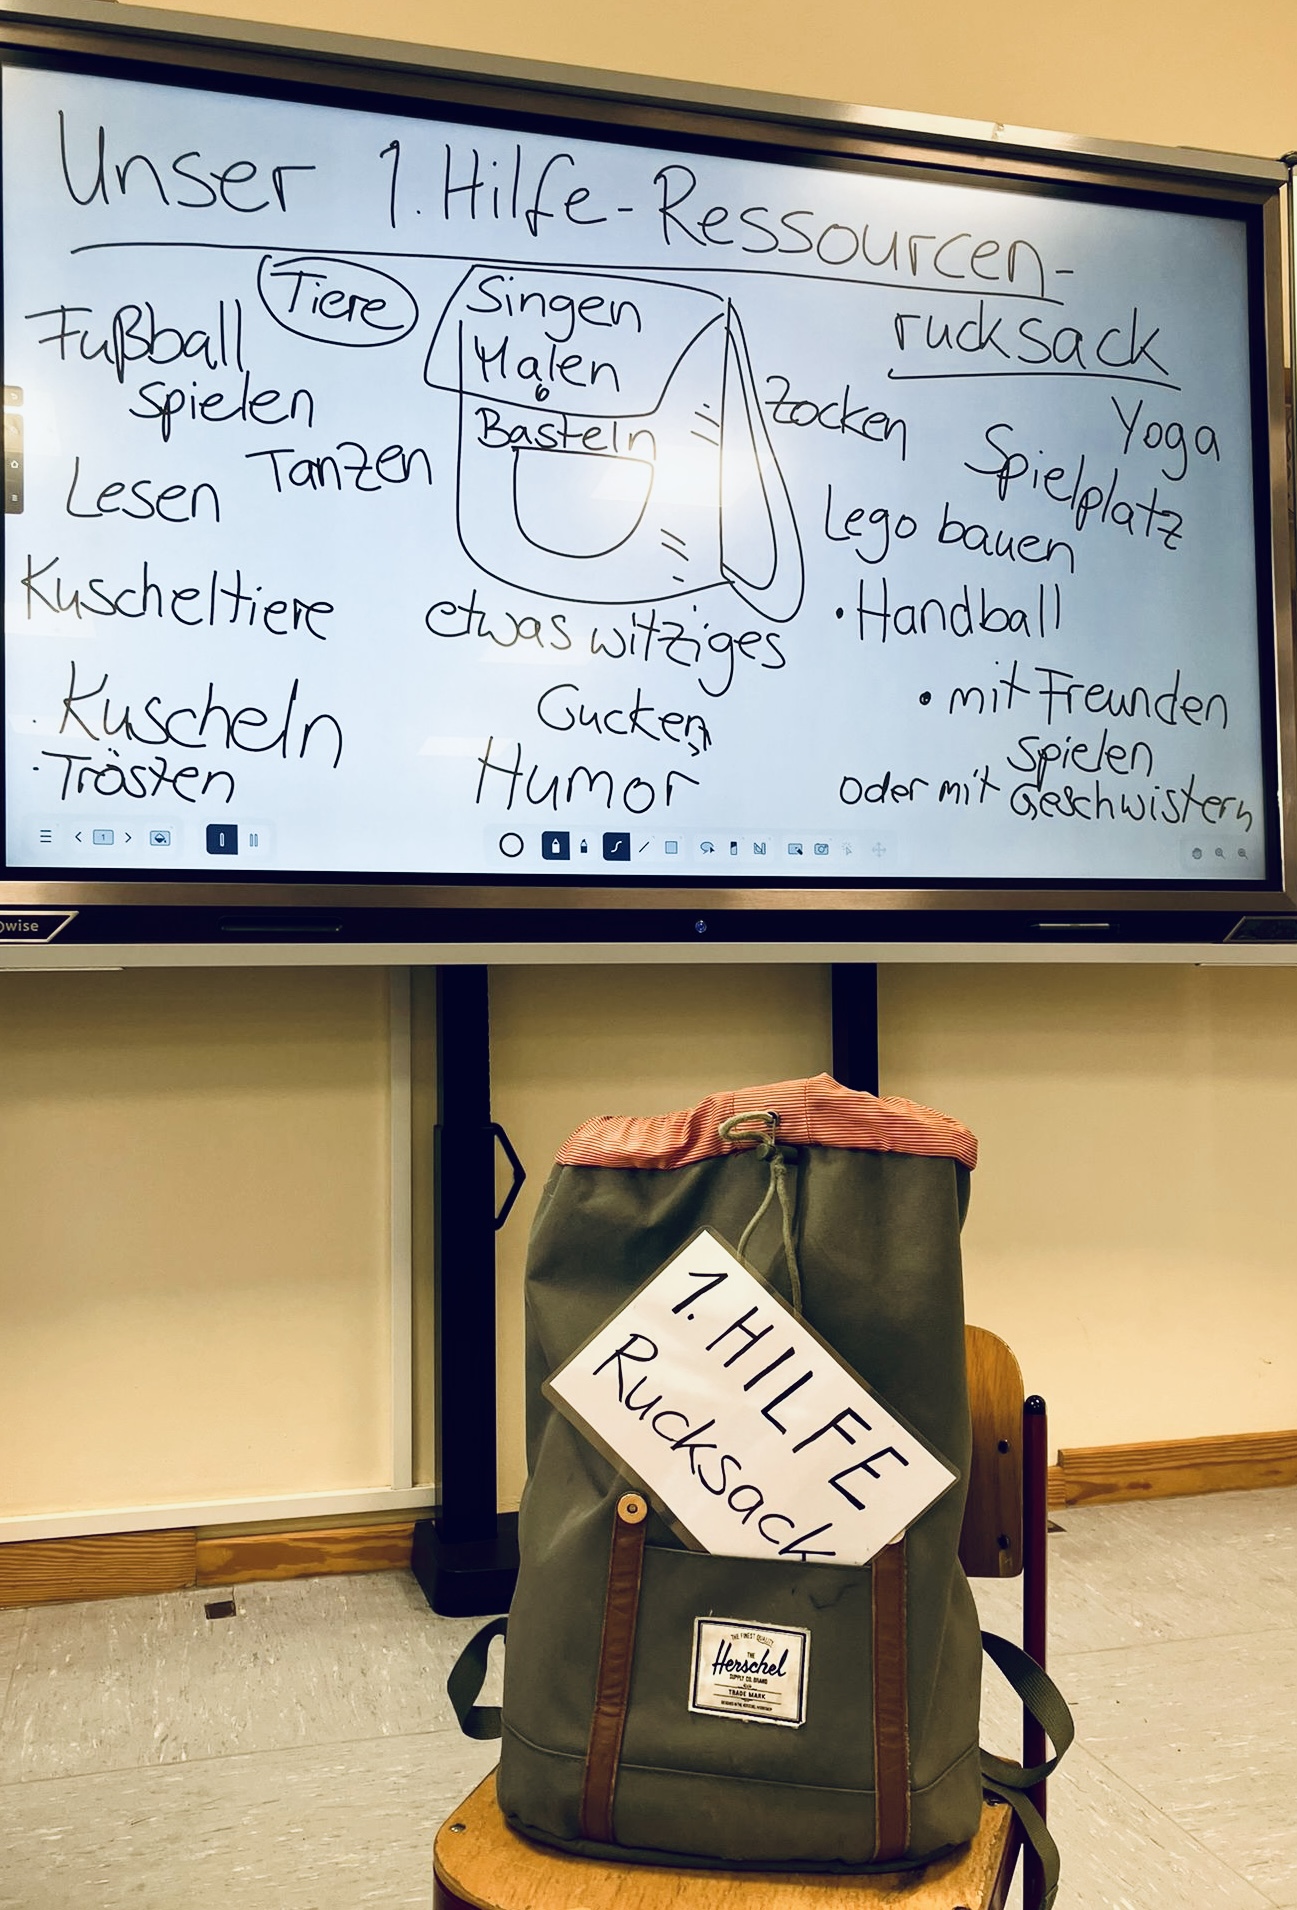 Unser 1. Hilfe-Ressourcen-
rucksack
Tiere
Fußball
spielen
Tanzen
Lesen
Kuscheltiere
Kuscheln
· Trösten
Singen
Malen
Basteln
etwas witziges
Gucken,
Humor
Zocken
Yoga
Spielplatz
Lego bauen
• Handball
• mit Freunden
spielen
oder mit Geschwistern
1
wise
1. HILFE
Rucksack
THE FINEST QUALITY
THE
Herschel
SUPPLY CO. BRAND
TRADE MARK